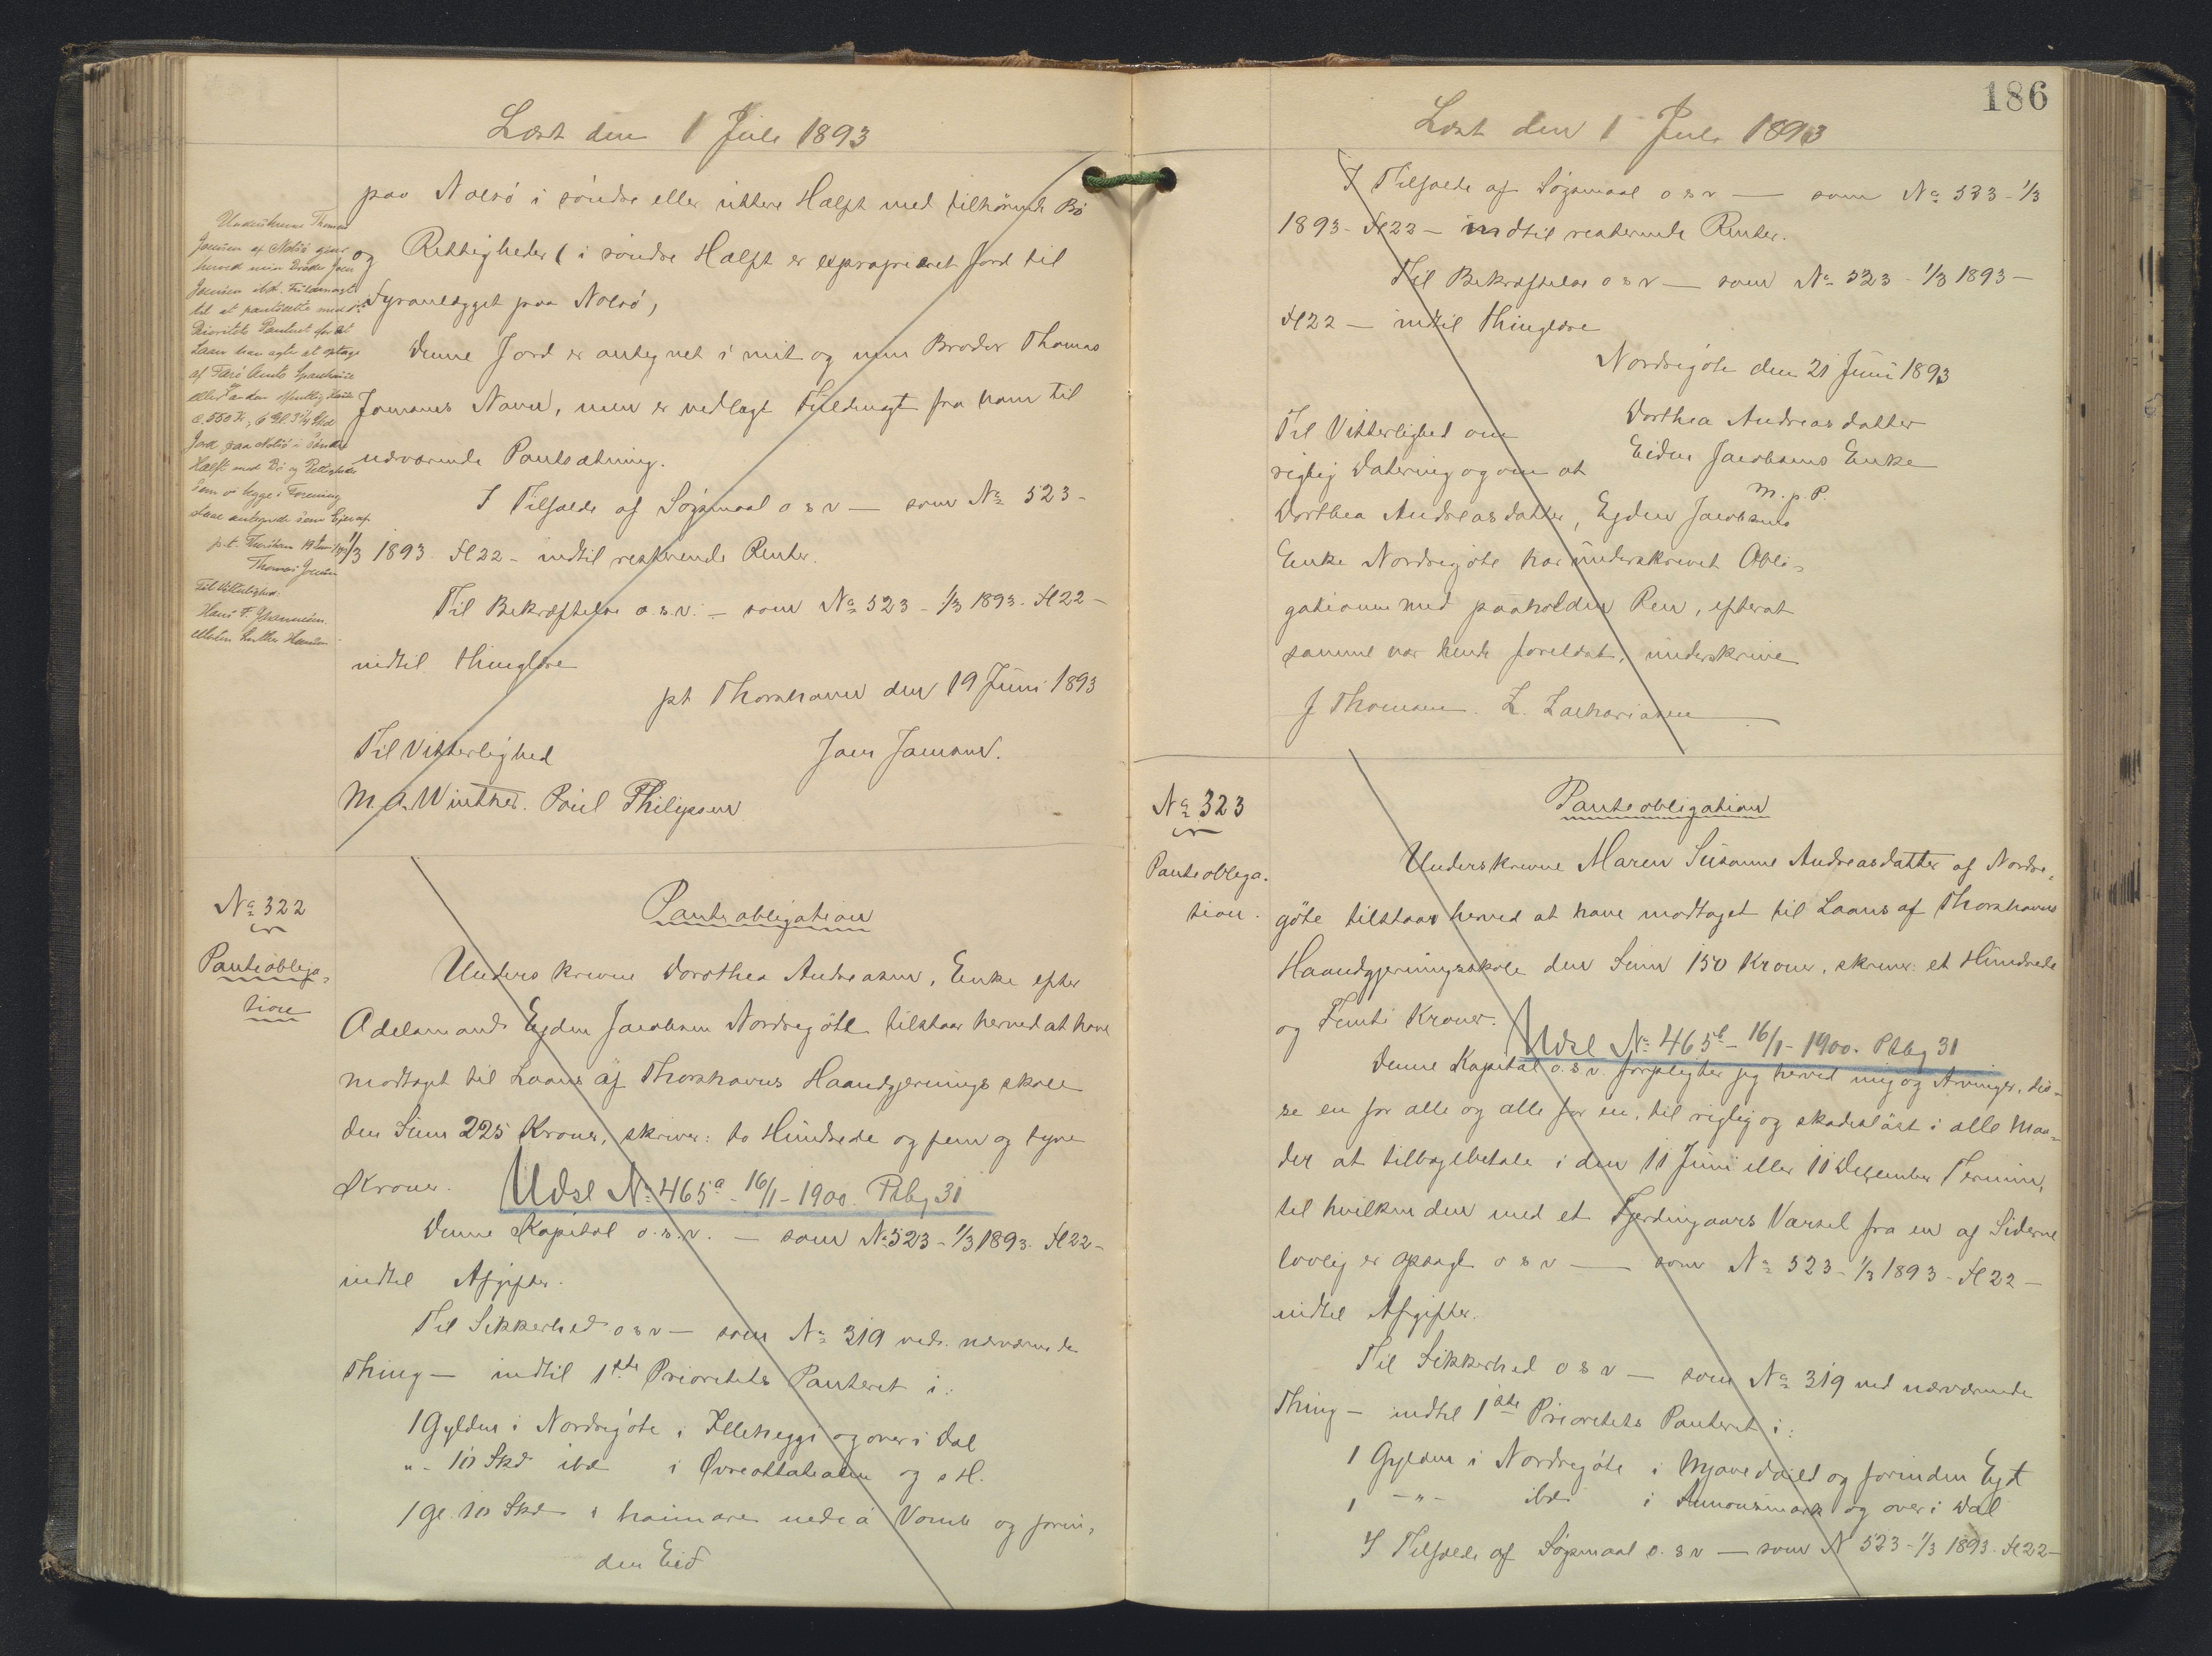 Læst den 1 Juli 1893
paa Nolsö i söndre eller uttere Halft med tilhörende Bö
og Rettigheder (i söndre Halft er exproprieret Jord til
Fyranlægget paa Nolsö,
Denne Jord er antegnet i mit og min Broder Thomas
Joensens Navn, men er vedlagt Fuldmagt fra ham til
nærværende Pantsætning.
I Tilfælde af Søgsmaal o s v — som No 523-
1/3 1893. Fl 22 - indtil resterende Renter.
Til Bekræftelse o.s.v. — som No 523 - 1/3 1893. Fl 22 —
indtil thinglæse
pt Thorshavn den 19 Juni 1893
Til Vitterlighed
Joen Joensen.
M. A. Winther. Poul Philipsen
Underskrevne Thomas
Joensen af Nolsö giver
herved min Broder Joen
Joensen ibd. Fuldmagt
til at pantsætte med 1.
Prioritets Panteret for et
Laan han agter at optage
af Færö Amts Sparekasse
eller anden offentlig Kasse
c. 550 Kr, 6 Gl. 3 1/4 Skd
Jord paa Nolsö i Söndre
Halft med Bö og Rettigheder
som vi begge i Forening
staae antegnede som Ejer af
p.t. Thorshavn 19 Juni 1893
Thomas Joensen
Til Vitterlighed:
Hans F. Johannesen.
No 322
Panteobliga-
tion
Panteobligation
Underskrevne Dorothea Andreasen, Enke efter
Odelsmand Eyden Jacobsen Nordregöte tilstaar herved at have
modtaget til Laans af Thorshavns Haandgjerningsskole
den Sum 225 Kroner, skriver: to Hundrede og fem og tyve
Kroner.
Udsl No 465a - 16/1 - 1900. Ptbg 31
Denne Kapital o.s.v. — som No 523 - 1/3 1893. Fl 22 -
indtil Afgifter.
Til Sikkerhed o s v — som No 319 ved nærværende
Thing — indtil 1ste Prioritets Panteret i:
1 Gylden i Nordregöte i Illeheygi og over i Dal
" - 10 Skd ibd i Øvreottateaten og s H.
1 Gl. 10 Skd i haimare nedi á Vomb og forin-
den Eid
186
Læst den 1 Juli 1893
I Tilfælde af Søgsmaal o s v — som No 523 - 1/3
1893 - Fl 22 — indtil resterende Renter.
Til Bekræftelse o s v — som No 523 - 1/3 1893 —
Fl 22 — indtil thinglæse
Nordregöte den 21 Juni 1893
Dorthea Andreasdatter
Eiden Jacobsens Enke
m. p. P.
Til Vitterlighed om
rigtig Datering og om at
Dorthea Andreasdatter, Eyden Jacobsens
Enke Nordregöte har underskrevet Obli-
gationen med paaholden Pen, efterat
samme var hende forelæst, underskrive
J Thomsen. Z. Zachariasen
No 323
Panteobliga-
tion.
Panteobligation
Underskrevne Maren Susanne Andreasdatter af Nordre-
göte tilstaar herved at have modtaget til Laans af Thorshavns
Haandgjerningsskole den Sum 150 Kroner, skriver: et Hundrede
og Femti Kroner.
Udsl No 465b - 16/1 - 1900. Ptbg 31
Denne Kapital o.s.v. forpligter jeg herved mig og Arvinger, dis-
se en for alle og alle for en, til rigtig og skadesløst i alle Maa-
der at tilbagebetale i den 11 Juni eller 11 December Termin,
til hvilken den med et Fjerdingaars Varsel fra en af Siderne
lovlig er opsagt o s v — som No 523 - 1/3 1893 - Fl 22 —
indtil Afgifter.
Til Sikkerhed o s v — som No 319 ved nærværende
Thing — indtil 1ste Prioritets Panteret i:
1 Gylden i Nordregöte i og forinden Eyd
1 - " - ibd. i og over i Dal
I Tilfælde af Søgsmaal o. s v — som N 523 - 1/3 1893. Fl 22 —